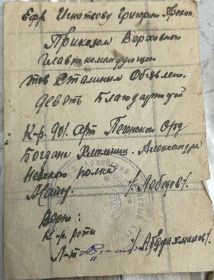 Ефр Игнаткову Григорию Прокоп.
Приказом Верховного
Главнокомандующ
тов Сталиным Объявлен.
девять Благодарностей
К-р 901. арт
Богдана Хмельниц. Александра
Невского полка
Майор.
Верно:
К-р роты
Л-т /Абдрахманов/